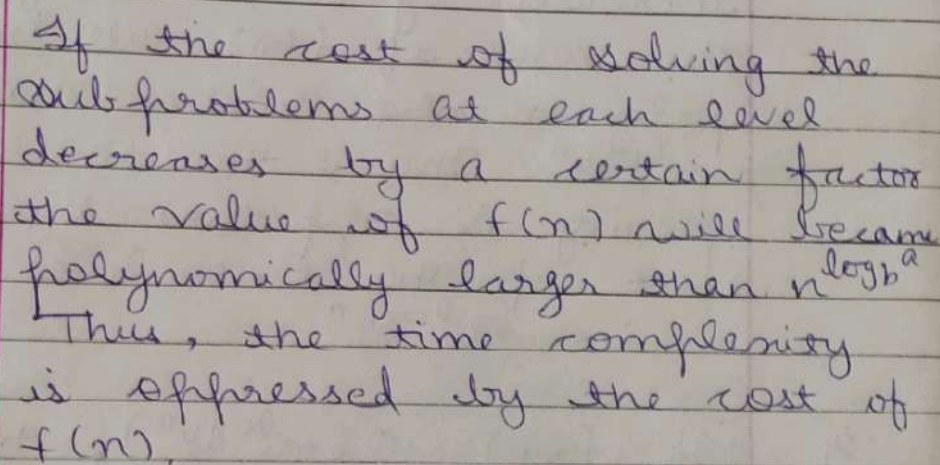 If the cost of solving the
subproblems at each level
decreases by a certain factor
the value of f(n) will became
polynomically larger than n^log_b^a
Thus, the time complexity
is oppressed by the cost of
f(n)